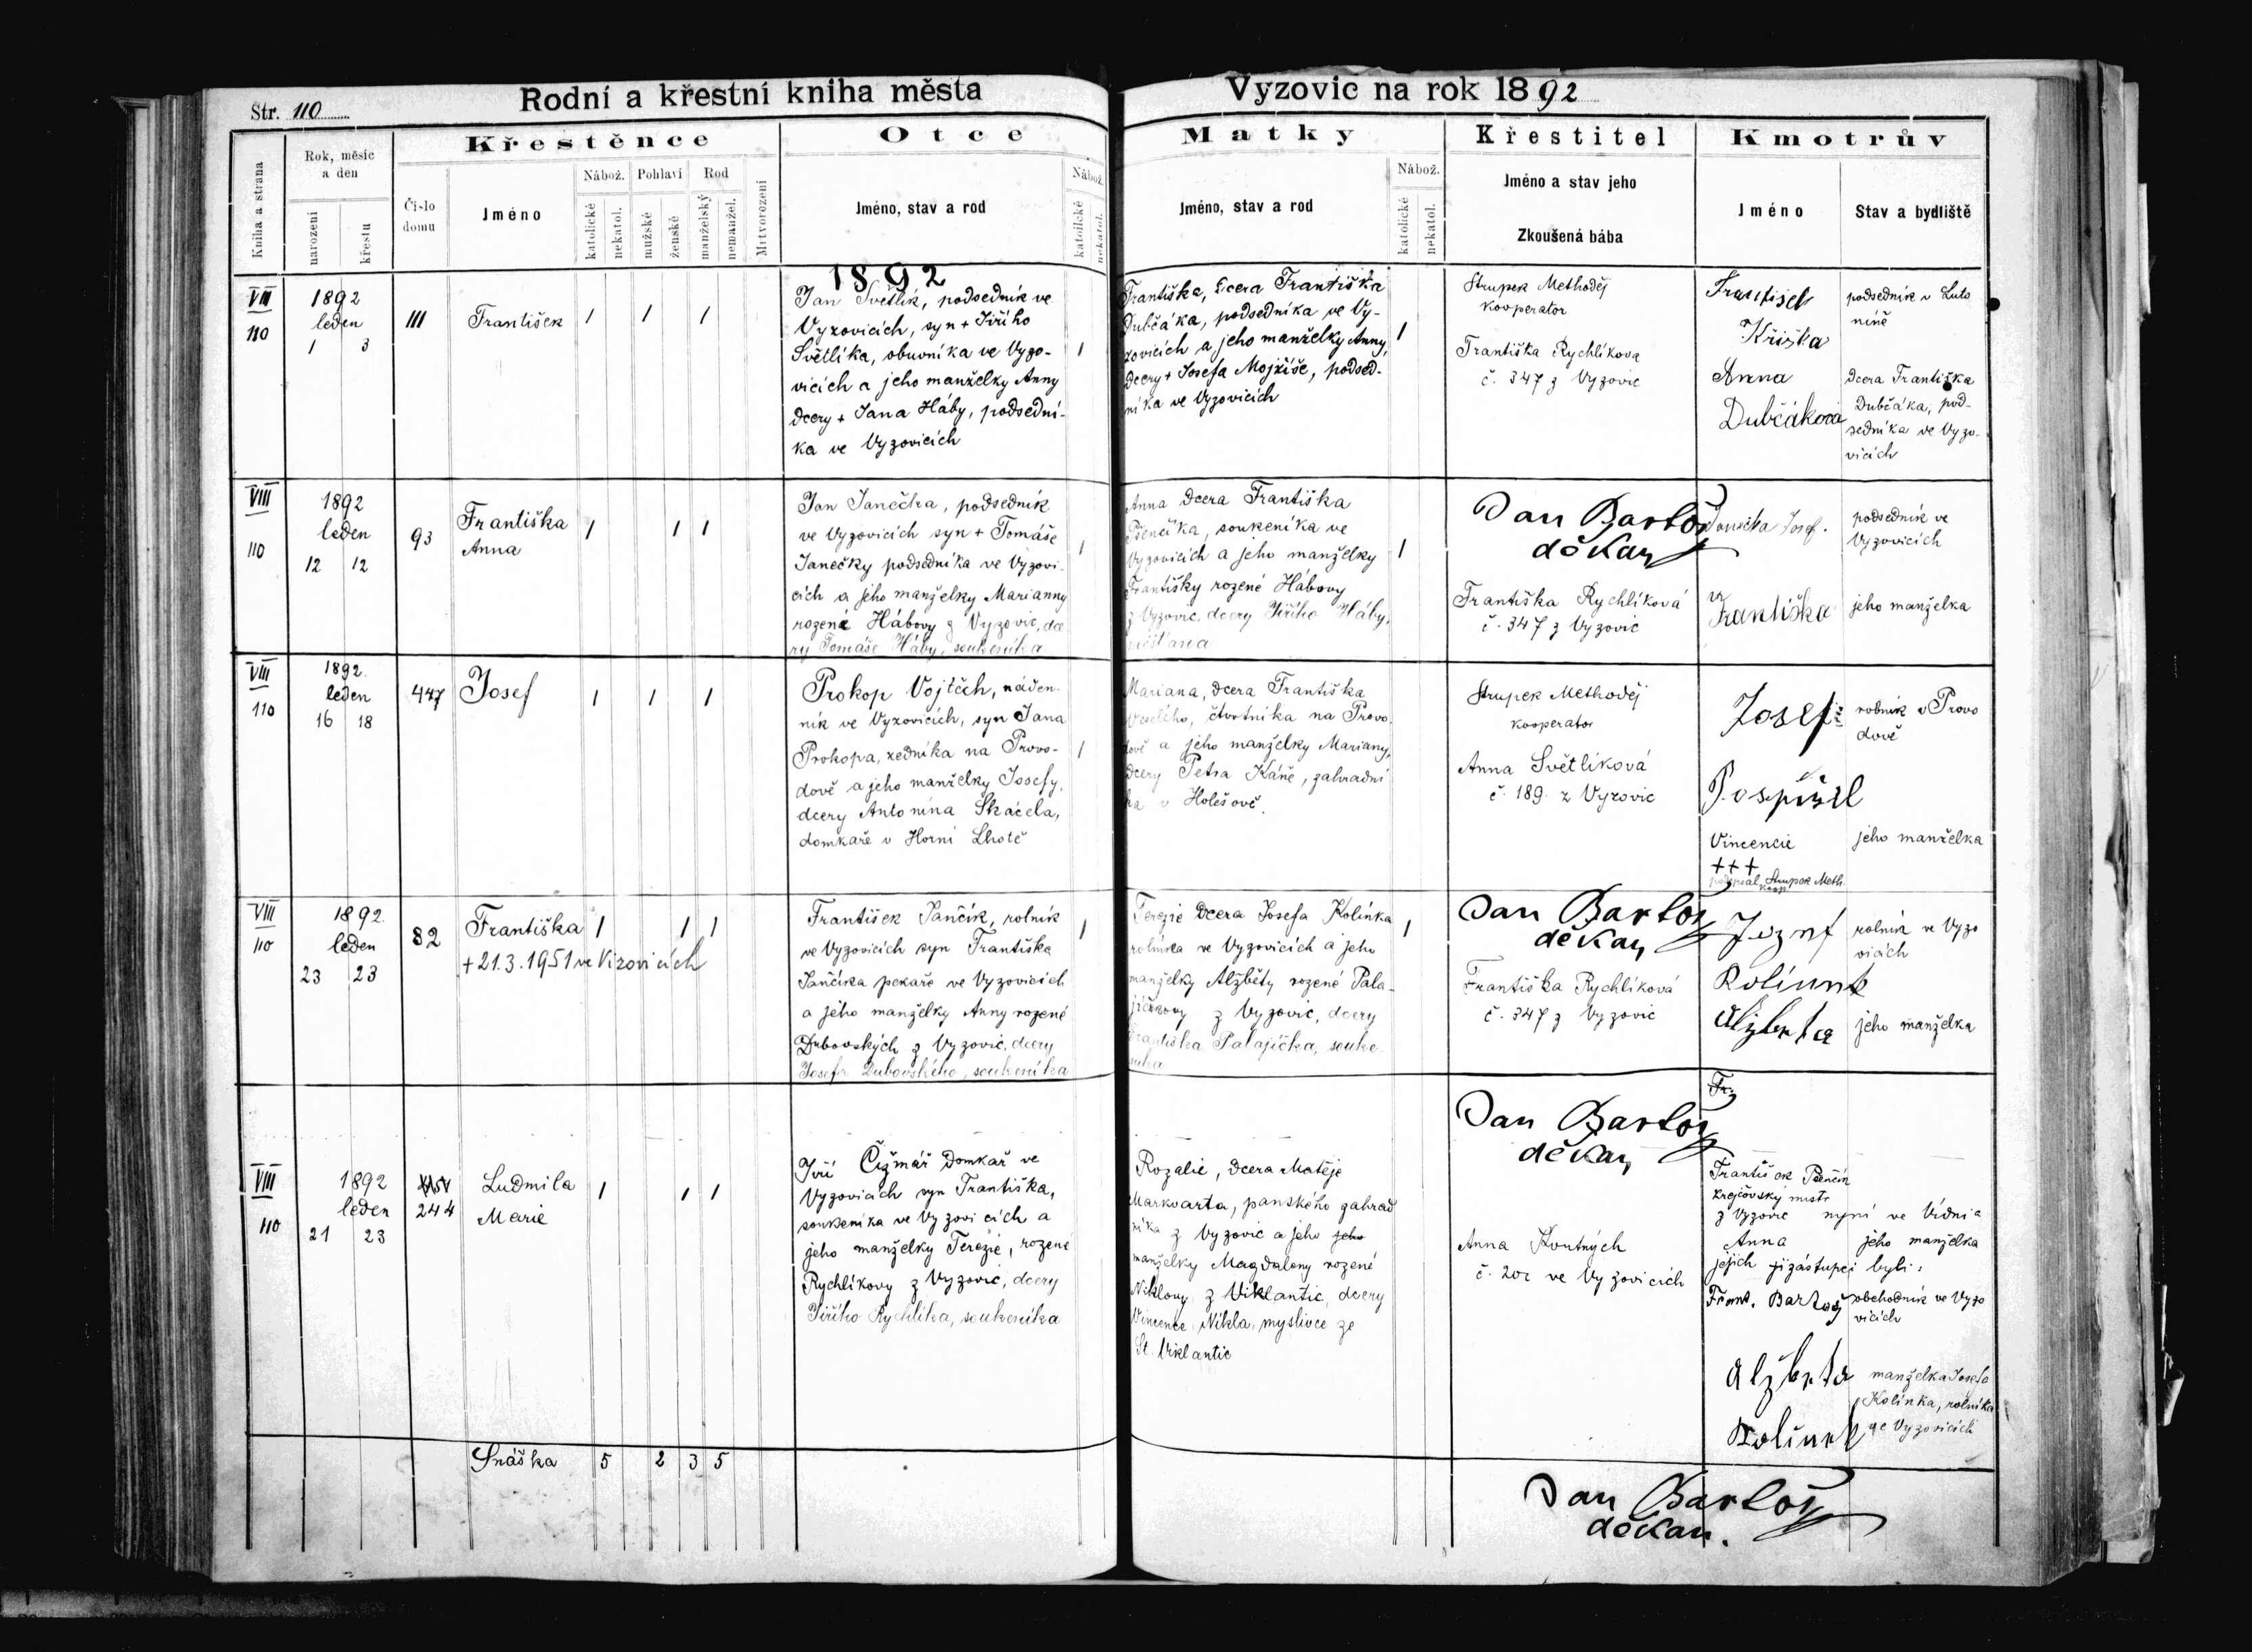 Str. 110
Rodní a křestní kniha města
Vyzovic na rok 1892
Kniha a strana
Rok, měsíc
a den
narození
křestu
Křestěnce
Číslo
domu
Jméno
Nábož.
katolické
nekatol.
Pohlaví
mužské
ženské
Rod
manželský
nemanžel.
Mrtvorozeni
Otce
Jméno, stav a rod
Nábož.
katolické
nekatol.
Matky
Jméno, stav a rod
Nábož.
katolické
nekatol.
Křestitel
Jméno a stav jeho
Zkoušená bába
Kmotrův
Jméno
Stav a bydliště
VIII
110
1892
leden
1 3
111
František
1 1 1
1892
Jan Světlík, podsedník ve
Vyzovicích, syn + Jiřího
Světlíka, obuvníka ve Vyzo-
vicích a jeho manželky Anny
dcery + Jana Háby, podsední-
ka ve Vyzovicích
1
Františka, dcera Františka
Dubčáka, podsedníka ve Vy-
zovicích a jeho manželky Anny,
dcery + Josefa Mojžíše, podsed-
níka ve Vyzovicích
1
Strupek Methoděj
kooperator
Františka Rychlíkova
č. 347 z Vyzovic
František
Křižka
Anna
Dubčáková
podsedník v Luto
níně
dcera Františka
Dubčáka, pod-
sedníka ve Vyzo-
vicích
VIII
110
1892
leden
12 12
93
Františka
Anna
1 1 1
Jan Janečka, podsedník
ve Vyzovicích syn + Tomáše
Janečky podsedníka ve Vyzovi-
cích a jeho manželky Marianny
rozené Hábovy z Vyzovic, dce
ry Tomáše Háby, soukeníka
1
Anna dcera Františka
Pšenčíka, soukeníka ve
Vyzovicích a jeho manželky
Františky rozené Hábovy
z Vyzovic, dcery Jiřího Háby,
měšťana
1
Jan Bartoš
děkan
Františka Rychlíková
č. 347 z Vyzovic
Janečka Josef.
Františka
podsedník ve
Vyzovicích
jeho manželka
VIII
110
1892.
leden
16 18
447
Josef
1 1 1
Prokop Vojtěch, náden-
ník ve Vyzovicích, syn Jana
Prokopa, zedníka na Provo-
dově a jeho manželky Josefy,
dcery Antonína Skácela,
domkaře v Horní Lhotě
1
Mariana, dcera Františka
Veselého, čtvrtníka na Provo-
dově a jeho manželky Mariany,
dcery Petra Káně, zahradní
ka v Holešově.
Strupek Methoděj
kooperator
Anna Světlíková
č. 189. z Vyzovic
Josef
Pospíšil
Vincencie
+++
podepsal Strupek Meth.
koop
rolník v Provo
dově
jeho manželka
VIII
110
1892.
leden
23 23
82
Františka
+ 21.3.1951 ve Vizovicích
1 1 1
František Jančík, rolník
ve Vyzovicích syn Františka
Jančíka pekaře ve Vyzovicích
a jeho manželky Anny rozené
Dubovských z Vyzovic, dcery
Josefa Dubovského, soukeníka
1
Terezie dcera Josefa Kolínka
rolníka ve Vyzovicích a jeho
manželky Alžběty rozené Pala-
jíčkovy z Vyzovic, dcery
Františka Palajíčka, souke-
níka
1
Jan Bartoš
děkan
Františka Rychlíková
č. 347 z Vyzovic
Jozef
Kolínek
Alžběta
rolník ve Vyzo
vicích
jeho manželka
VIII
110
1892
leden
21 23
244
Ludmila
Marie
1 1 1
Jiří Čižmář domkař ve
Vyzovicích syn Františka,
soukeníka ve Vyzovicích a
jeho manželky Terezie, rozené
Rychlíkovy z Vyzovic, dcery
Jiřího Rychlíka, soukeníka
Rozalie, dcera Matěje
Markvarta, panského zahrad
níka z Vyzovic a jeho jeho
manželky Magdaleny rozené
Niklovy z Viklantic, dcery
Vincence Nikla, myslivce ze
St. Viklantic
Jan Bartoš
děkan
Anna Koutných
č. 202 ve Vyzovicích
Fr
František Pšenčík
krejčovský mistr
z Vyzovic nyní ve Vídni a
Anna jeho manželka
jejich zástupci byli:
Frant. Bartoš obchodník ve Vyzo
vicích
Alžběta
Kolínek
manželka Josefa
Kolínka, rolníka
ve Vyzovicích
Snáška 5 2 3 5
Jan Bartoš
děkan.